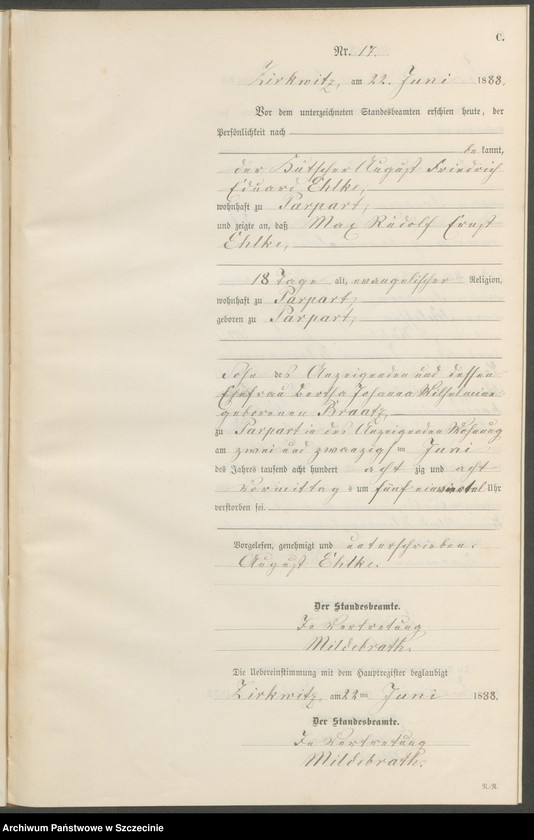 C.
Nr. 17.
Zirkwitz, am 22. Juni 1888.
Vor dem unterzeichneten Standesbeamten erschien heute, der
Persönlichkeit nach
be kannt,
der Kutscher August Friedrich
Eduard Ehlke,
wohnhaft zu Parpart,
und zeigte an, daß Max Rudolf Ernst
Ehlke,
18 Tage alt, evangelischer Religion,
wohnhaft zu Parpart,
geboren zu Parpart,
Sohn des Anzeigenden und dessen
Ehefrau Bertha Johanna Wilhelmine
geborenen Braatz,
zu Parpart in des Anzeigenden Wohnung
am zwei und zwanzigsten Juni
des Jahres tausend acht hundert acht zig und acht
Vormittags um fünf einviertel Uhr
verstorben sei.
Vorgelesen, genehmigt und unterschrieben.
August Ehlke.
Der Standesbeamte.
In Vertretung
Mildebrath.
Die Uebereinstimmung mit dem Hauptregister beglaubigt
Zirkwitz, am 22ten Juni 1888.
Der Standesbeamte.
In Vertretung
Mildebrath.
Archiwum Państwowe w Szczecinie